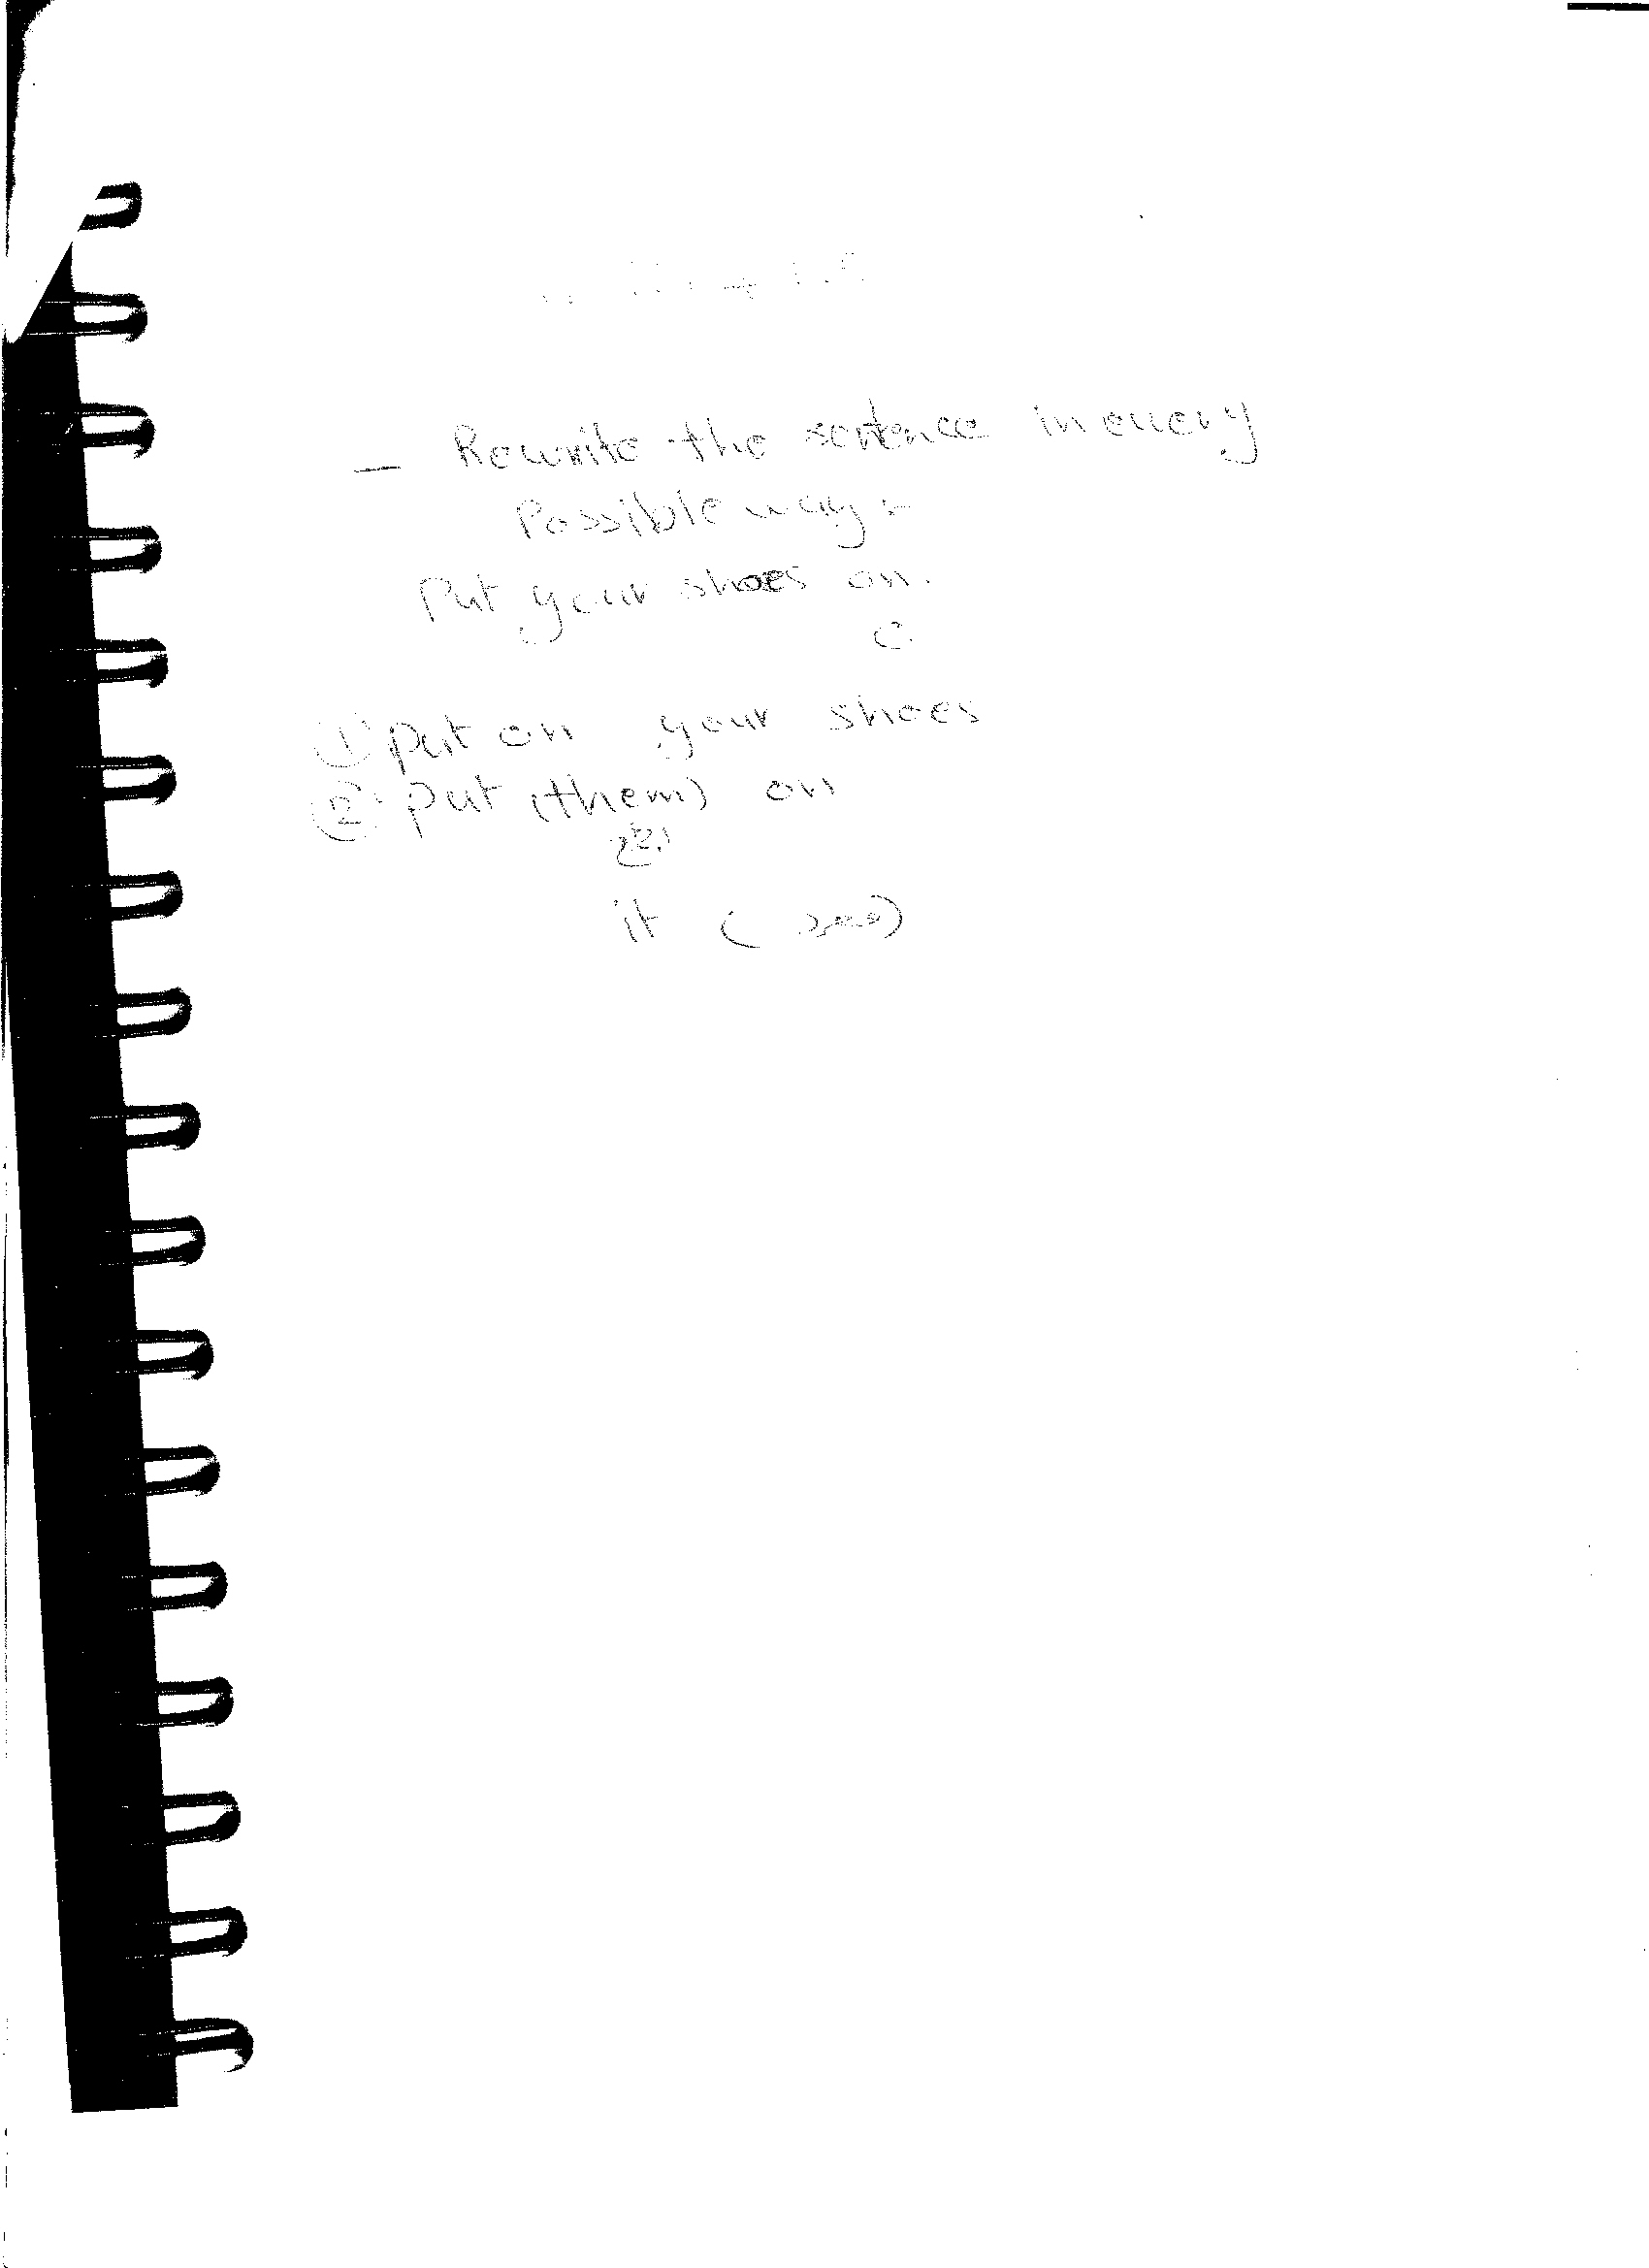 — Rewrite the sentence in every
Possible way :-
Put your shoes on.
① put on your shoes
② put (them) on
جمع
it (مفرد)